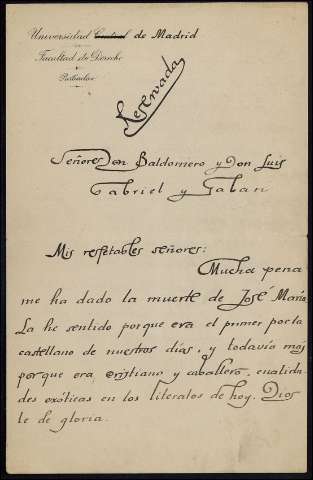 Universidad Central de Madrid
Facultad de Derecho
Particular
Reservada
Señores Don Baldomero y Don Luis
Gabriel y Galan
Mis respetables señores:
Mucha pena
me ha dado la muerte de José María
La he sentido porque era el primer poeta
castellano de nuestros días, y todavía más
porque era cristiano y caballero, cualida-
des exóticas en los literatos de hoy. Dios
le de gloria.